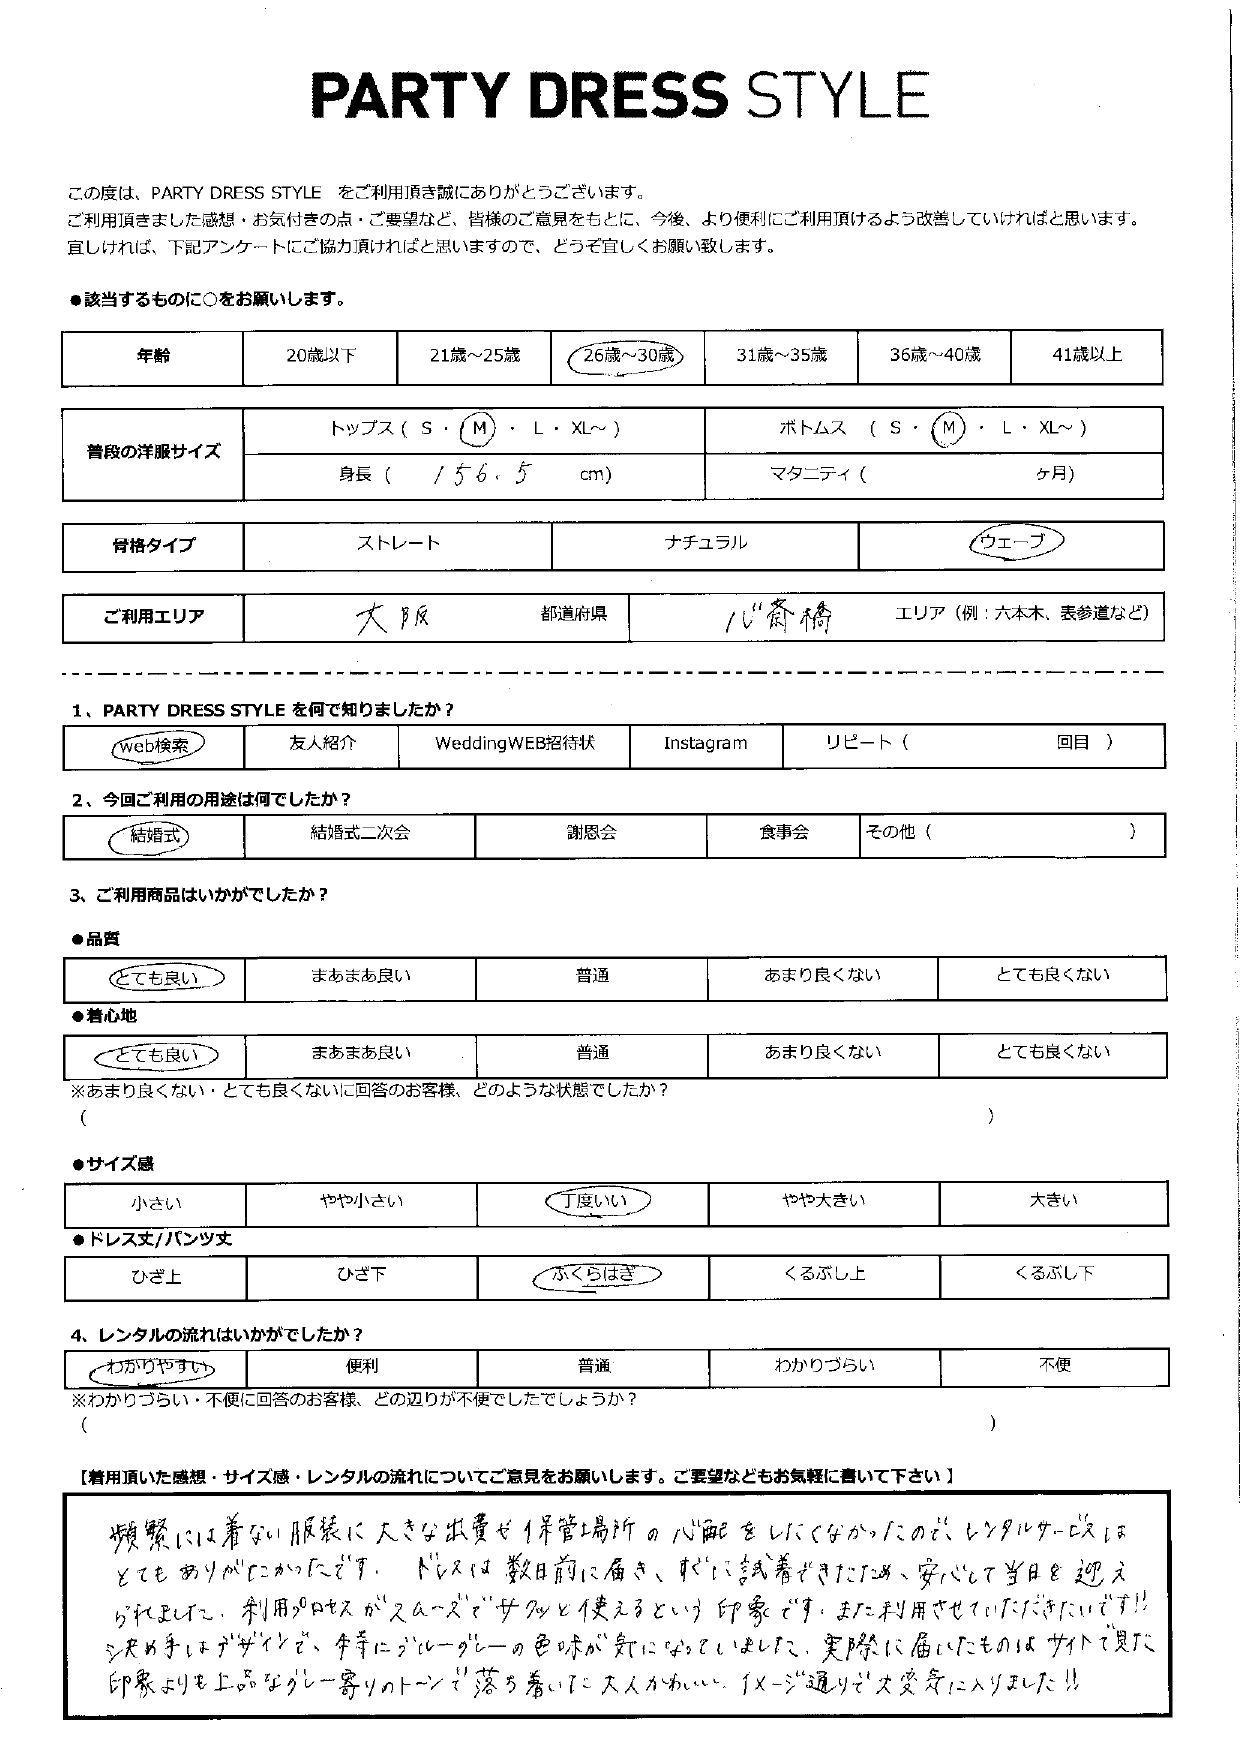 PARTY DRESS STYLE
この度は、PARTY DRESS STYLE をご利用頂き誠にありがとうございます。
ご利用頂きました感想・お気付きの点・ご要望など、皆様のご意見をもとに、今後、より便利にご利用頂けるよう改善していければと思います。
宜しければ、下記アンケートにご協力頂ければと思いますので、どうぞ宜しくお願い致します。
●該当するものに○をお願いします。
年齢 20歳以下 21歳～25歳 26歳～30歳 31歳～35歳 36歳～40歳 41歳以上
普段の洋服サイズ
トップス ( S ・ M ・ L ・ XL～ ) ボトムス ( S ・ M ・ L ・ XL～ )
身長 ( 156.5 cm) マタニティ ( ヶ月)
骨格タイプ ストレート ナチュラル ウェーブ
ご利用エリア 大阪 都道府県 心斎橋 エリア（例：六本木、表参道など）
1、PARTY DRESS STYLE を何で知りましたか？
web検索 友人紹介 WeddingWEB招待状 Instagram リピート ( 回目 )
2、今回ご利用の用途は何でしたか？
結婚式 結婚式二次会 謝恩会 食事会 その他 ( )
3、ご利用商品はいかがでしたか？
●品質
とても良い まあまあ良い 普通 あまり良くない とても良くない
●着心地
とても良い まあまあ良い 普通 あまり良くない とても良くない
※あまり良くない・とても良くないに回答のお客様、どのような状態でしたか？
( )
●サイズ感
小さい やや小さい 丁度いい やや大きい 大きい
●ドレス丈/パンツ丈
ひざ上 ひざ下 ふくらはぎ くるぶし上 くるぶし下
4、レンタルの流れはいかがでしたか？
わかりやすい 便利 普通 わかりづらい 不便
※わかりづらい・不便に回答のお客様、どの辺りが不便でしたでしょうか？
( )
【着用頂いた感想・サイズ感・レンタルの流れについてご意見をお願いします。ご要望などもお気軽に書いて下さい】
頻繁には着ない服装に大きな出費や保管場所の心配をしたくなかったので、レンタルサービスは
とてもありがたかったです。ドレスは数日前に届き、すぐに試着できたため、安心して当日を迎え
られました。利用プロセスがスムーズでサクッと使えるという印象です。また利用させていただきたいです!!
決め手はデザインで、本当にブルーグレーの色味が気になっていました。実際に届いたものはサイトで見た
印象よりも上品なグレー寄りのトーンで落ち着いた大人かわいい、イメージ通りで大変気に入りました!!